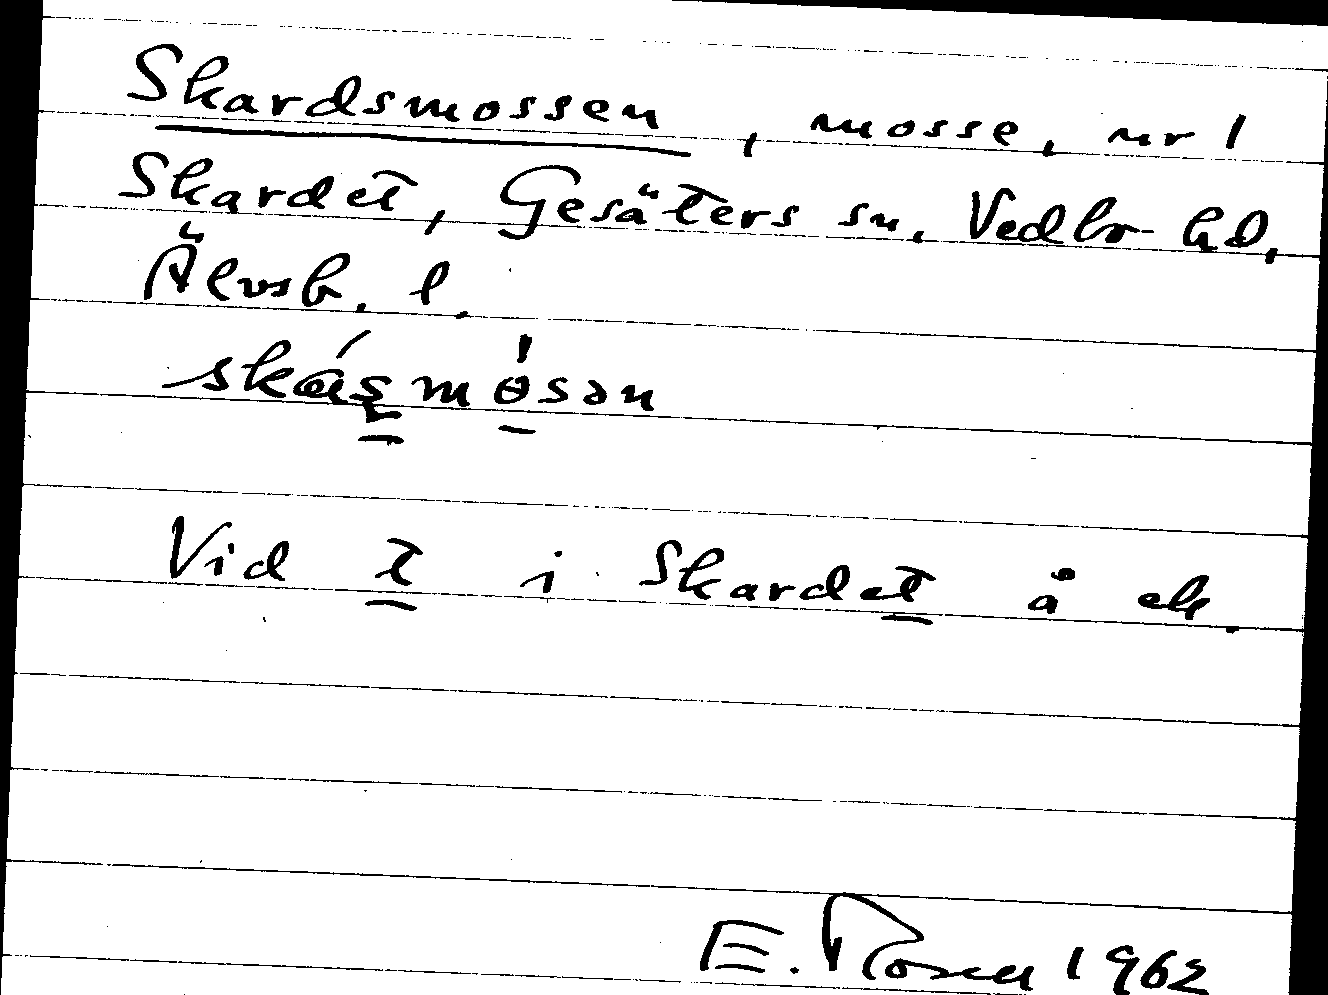 Skardsmossen, mosse, nr 1
Skardet, Gesäters sn, Vedbo hd,
Älvsb. l.
skáʂmɵ̀sən
Vid t i Skardet å ek.
E. Rosen 1962